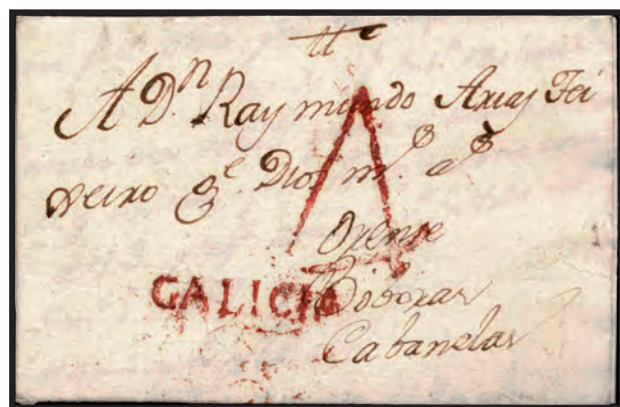 A D.n Raymundo Arias Fei
xeiro g.e Dios m.s a.s
Orense
GALICIA
Boboras
Cabanelas